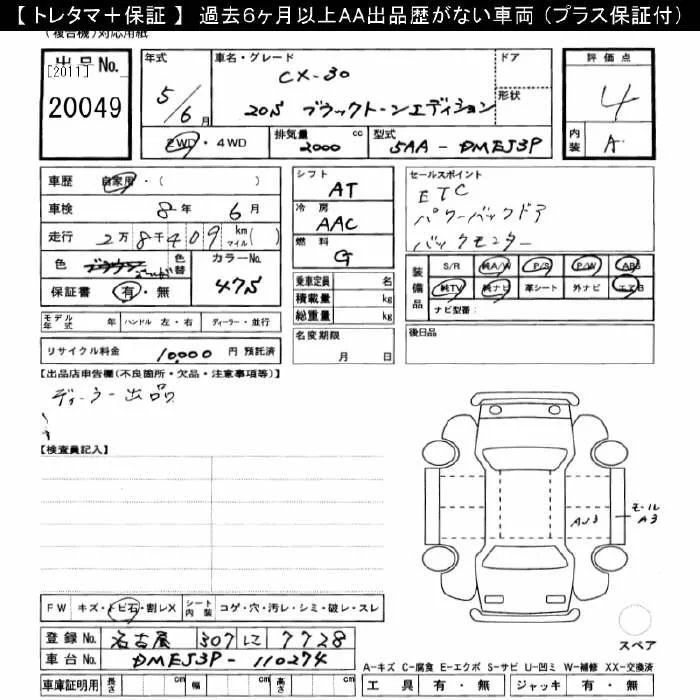 【 トレタマ＋保証 】 過去6ヶ月以上AA出品歴がない車両 (プラス保証付)
(複合機)対応用紙
出品No.
[2011]
20049
年式
5/6月
車名・グレード
CX-30
20S ブラックトーンエディション
ドア
形状
2WD・4WD
排気量 2000 cc
型式 5AA - DMEJ3P
評価点
4
内装 A
車歴 自家用・( )
車検 8年 6月
走行 2万8千409 km マイル( )
色
色替
カラーNo.
47S
保証書 有・無
モデル年式 年 ハンドル 左・右 ディーラー・並行
リサイクル料金 10,000 円 預託済
シフト
AT
冷房
AAC
燃料
G
乗車定員 名
積載量 kg
総重量 kg
名変期限
月 日
セールスポイント
ETC
パワーバックドア
バックモニター
装備品
S/R 純A/W P/S P/W ABS
純TV 純ナビ 革シート 外ナビ エアB
ナビ型番:
後日品
【出品店申告欄(不良箇所・欠品・注意事項等)】
ディーラー出品
【検査員記入】
モール
A3
FW キズ・トビ石・割レX シート内装 コゲ・穴・汚レ・シミ・破レ・スレ
登録No. 名古屋 307 に 7728
車台No. DMEJ3P-110274
スペア
A-キズ C-腐食 E-エクボ S-サビ U-凹ミ W-補修 XX-交換済
車庫証明用 長さ cm 幅 cm 高さ cm
工具 有・無 ジャッキ 有・無